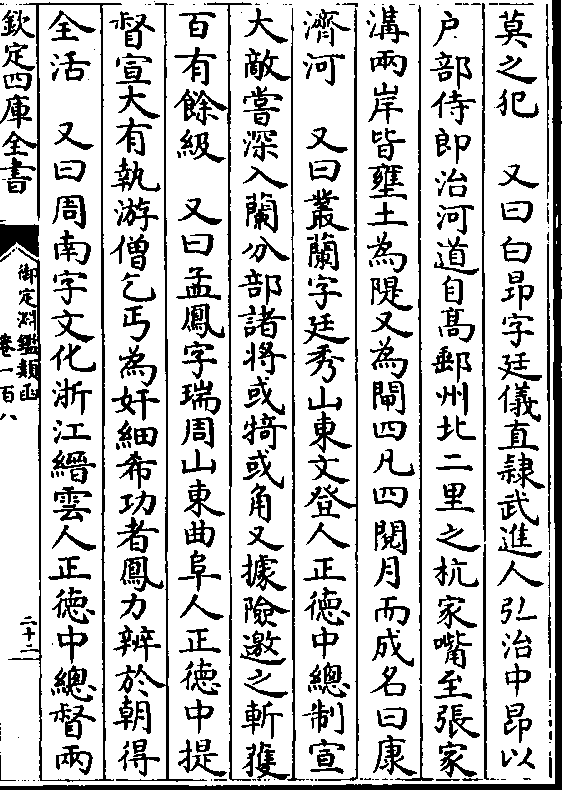 莫之犯　又曰白昂字廷儀直隷武進人弘治中昂以
户部侍郎治河道自髙郵州北二里之杭家嘴至張家
溝兩岸皆壅土為隄又為閘四凡四閱月而成名曰康
濟河　又曰叢蘭字廷秀山東文登人正徳中總制宣
大敵嘗深入蘭分部諸將或犄或角又據險邀之斬獲
百有餘級　又曰孟鳳字瑞周山東曲阜人正徳中提
督宣大有執游僧乞丐為奸細希功者鳳力辨於朝得
全活　又曰周南字文化浙江縉雲人正徳中總督兩
欽定四庫全書
御定淵鑑類函
卷一百八
二十二